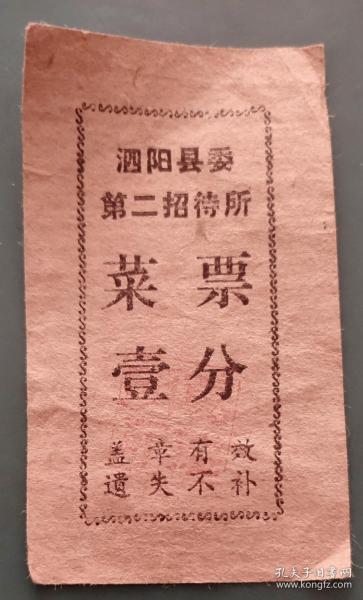 泗阳县委
第二招待所
菜票
壹分
盖章有效
遗失不补
孔夫子旧书网
www.kongfz.com